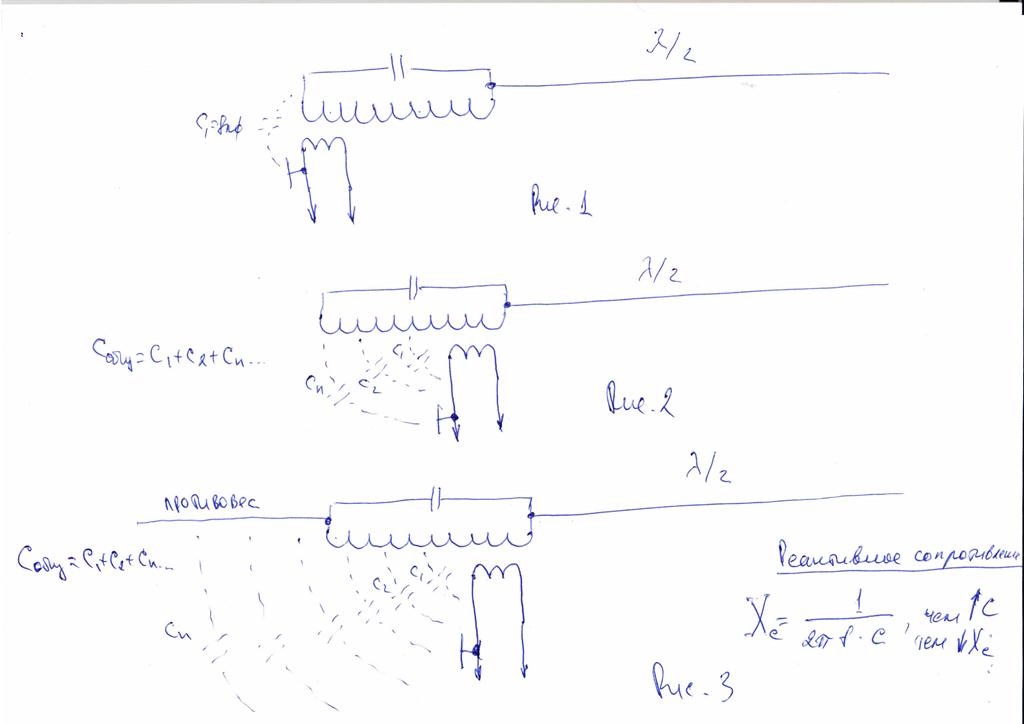 λ/2
C₁=8пф
Рис. 1
λ/2
Cобщ=C₁+C₂+Cn...
C₁
C₂
Cn
Рис. 2
λ/2
противовес
Cобщ=C₁+C₂+Cn...
C₁
C₂
Cn
Реактивное сопротивление
Xc = 1 / 2πf·C , чем ↑C
тем ↓Xc
Рис. 3